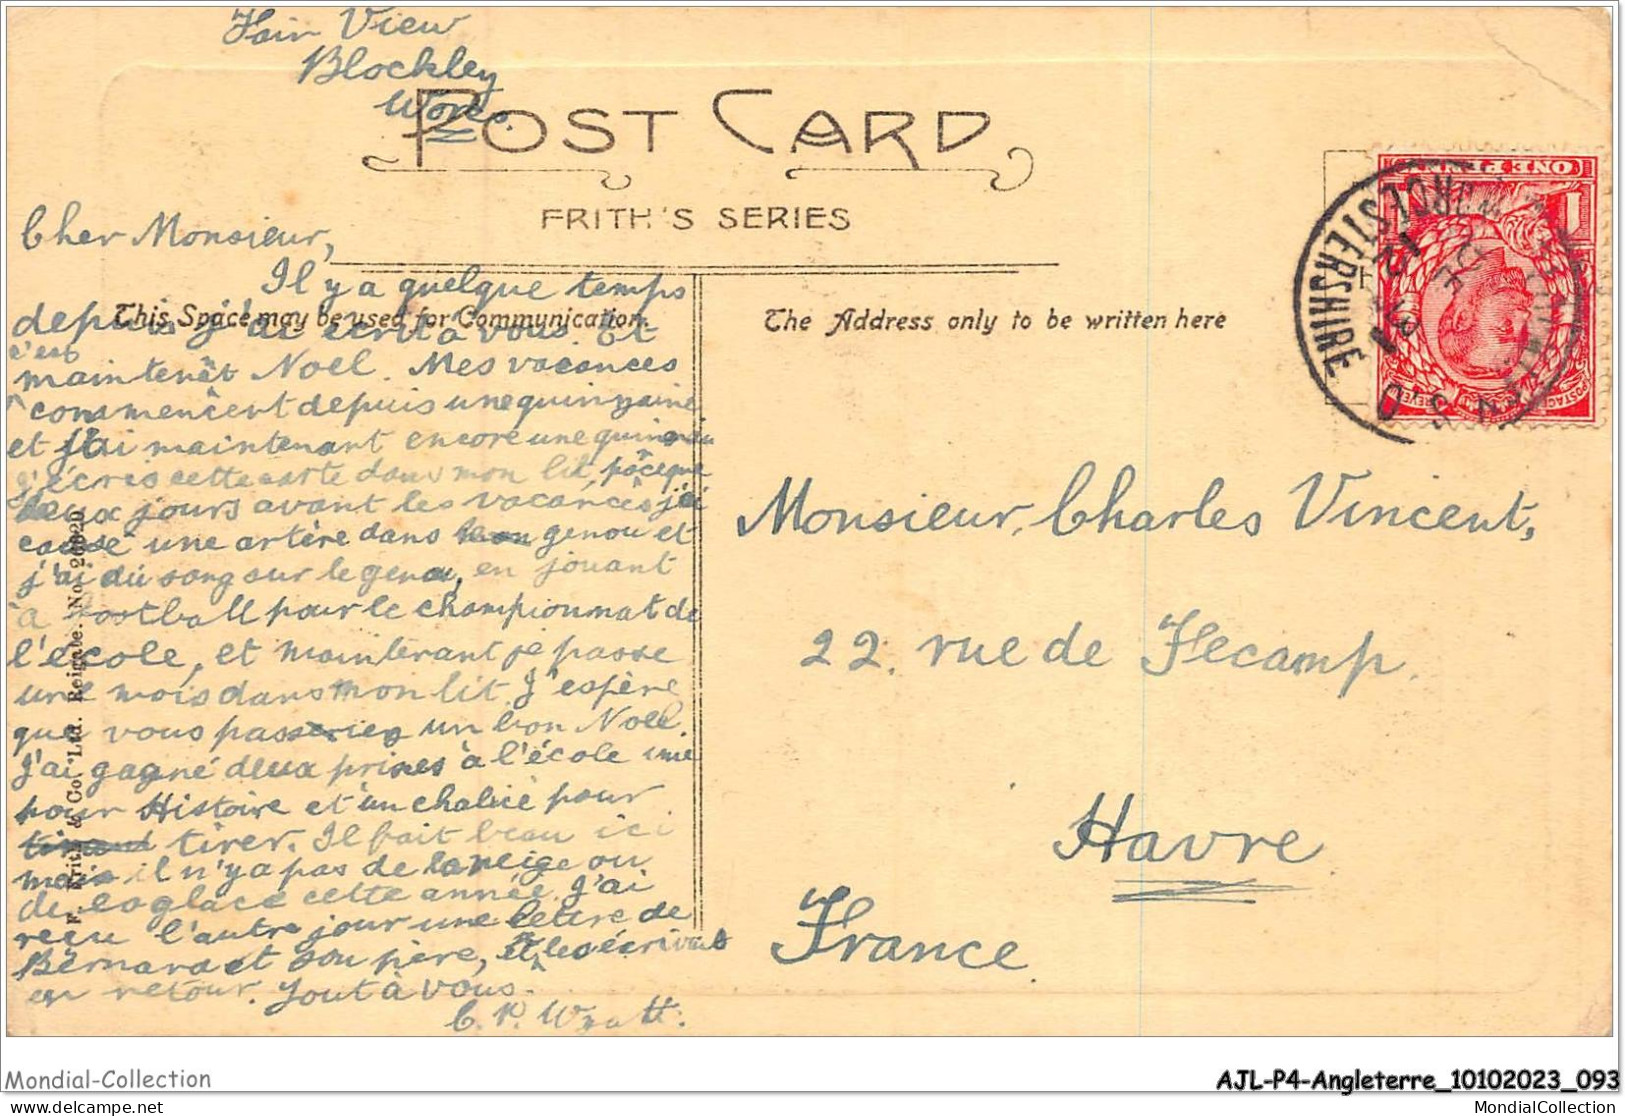 Fair View
Blockley
Worcs.
POST CARD
FRITH'S SERIES
Cher Monsieur,
Il y a quelque temps
depuis j'ai écrit à vous. Et
c'est
maintenêt Noel. Mes vacances
commencent depuis une quinzaine
et j'ai maintenant encore une
j'écris cette carte dans mon lit, pâceque
deux jours avant les vacances j'ai
cassé une artère dans genou et
j'ai du sang sur le genou, en jouant
à Football pour le championnat de
l'école, et maintenant je passe
une mois dans mon lit. J'espère
que vous passeriez un bon Noel.
J'ai gagné deux prises à l'école une
pour Histoire et un chalice pour
tirer. Il fait beau ici
mais il n'y a pas de la neige ou
de la glace cette année. J'ai
reçu l'autre jour une lettre de
Bernard et son père, et les écrivais
en retour. Tout à vous.
C. P. Wyatt.
This Space may be used for Communication.
The Address only to be written here
F. Frith & Co. Ltd. Reigate. No.
Monsieur, Charles Vincent,
22. rue de Fecamp.
Havre
France
ONE PENNY
POSTAGE
WORCESTERSHIRE
12
DE
S.O
Mondial-Collection
AJL-P4-Angleterre_10102023_093
text MondialCollection
MondialCollection